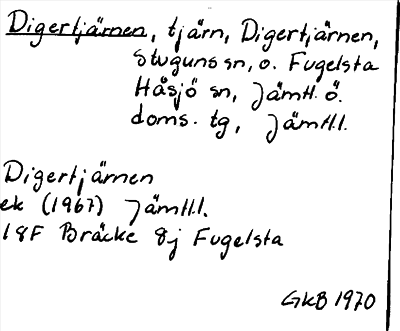 Digertjärnen, tjärn, Digertjärnen,
Stuguns sn, o. Fugelsta
Håsjö sn, Jämtl. ö.
doms. tg, Jämtl.l.
Digertjärnen
ek (1967) Jämtl.l.
18F Bräcke 8j Fugelsta
GKB 1970